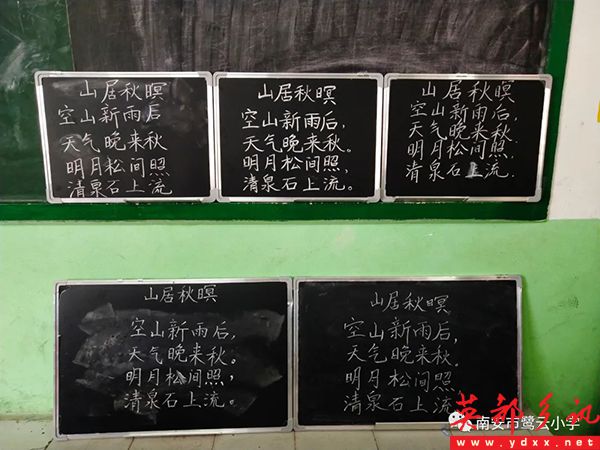 山居秋暝
空山新雨后
天气晚来秋
明月松间照
清泉石上流
山居秋暝
空山新雨后,
天气晚来秋。
明月松间照,
清泉石上流。
山居秋暝
空山新雨后,
天气晚来秋
明月松间照,
清泉石上流.
山居秋暝
空山新雨后,
天气晚来秋。
明月松间照,
清泉石上流。
山居秋暝
空山新雨后,
天气晚来秋.
明月松间照,
清泉石上流。
南安市鹭云小学
英都乡讯
www.ydxx.net